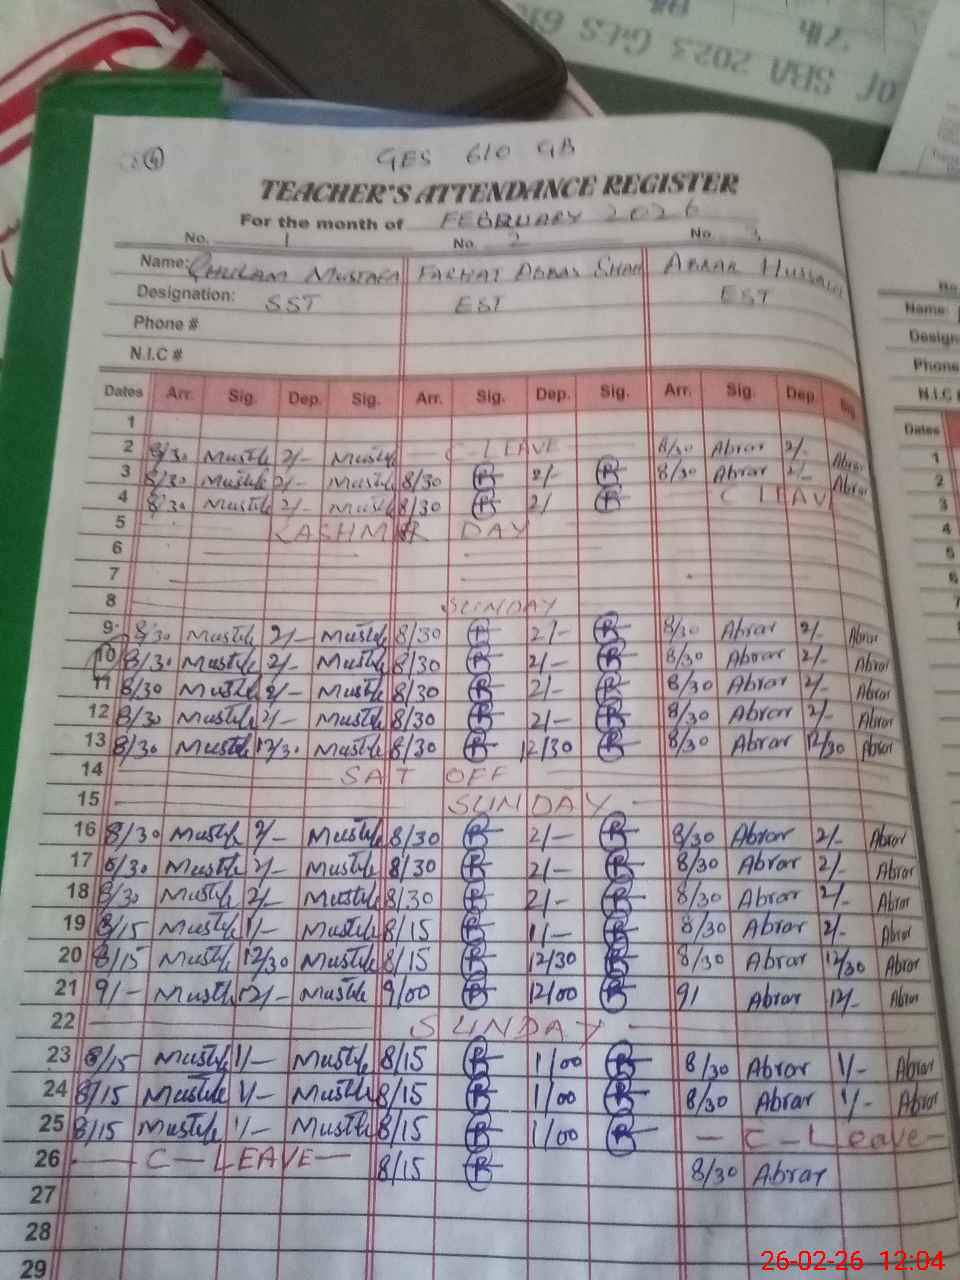 of SBA 2023 GES 61
7th
4
GES 610 GB
TEACHER'S ATTENDANCE REGISTER
For the month of FEBRUARY 2026
No. 1 No. 2 No. 3
Name: GHULAM MUSTAFA FARHAT ABBAS SHAH ABRAR HUSSAIN
Designation: SST EST EST
Phone #
N.I.C #
Dates Arr. Sig. Dep. Sig. Arr. Sig. Dep. Sig. Arr. Sig. Dep. Sig.
1
2 8/30 Mustafa 2/- Mustafa - C-LEAVE 8/30 Abrar 2/- Abrar
3 8/30 Mustafa 2/- Mustafa 8/30 2/- 8/30 Abrar 2/- Abrar
4 8/30 Mustafa 2/- Mustafa 8/30 2/ C LEAV
5 KASHMIR DAY
6
7
8 SUNDAY
9 8/30 Mustafa 2/- Mustafa 8/30 2/- 8/30 Abrar 2/- Abrar
10 8/30 Mustafa 2/- Mustafa 8/30 2/- 8/30 Abrar 2/- Abrar
11 8/30 Mustafa 2/- Mustafa 8/30 2/- 8/30 Abrar 2/- Abrar
12 8/30 Mustafa 2/- Mustafa 8/30 2/- 8/30 Abrar 2/- Abrar
13 8/30 Mustafa 12/30 Mustafa 8/30 12/30 8/30 Abrar 12/30 Abrar
14 SAT OFF
15 SUNDAY
16 8/30 Mustafa 2/- Mustafa 8/30 2/- 8/30 Abrar 2/- Abrar
17 8/30 Mustafa 2/- Mustafa 8/30 2/- 8/30 Abrar 2/- Abrar
18 8/30 Mustafa 2/- Mustafa 8/30 2/- 8/30 Abrar 2/- Abrar
19 8/15 Mustafa 1/- Mustafa 8/15 1/- 8/30 Abrar 2/- Abrar
20 8/15 Mustafa 12/30 Mustafa 8/15 12/30 8/30 Abrar 12/30 Abrar
21 9/- Mustafa 12/- Mustafa 9/00 12/00 9/ Abrar 12/- Abrar
22 SUNDAY
23 8/15 Mustafa 1/- Mustafa 8/15 1/00 8/30 Abrar 1/- Abrar
24 8/15 Mustafa 1/- Mustafa 8/15 1/00 8/30 Abrar 1/- Abrar
25 8/15 Mustafa 1/- Mustafa 8/15 1/00 - C-Leave-
26 - C-LEAVE- 8/15 8/30 Abrar
27
28
29
Name:
Design
Phone
N.I.C
Dates
1
2
3
4
5
6
26-02-26 12:04